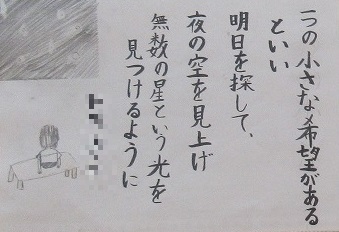 一つの小さな希望がある
といい
明日を探して、
夜の空を見上げ
無数の星という光を
見つけるように